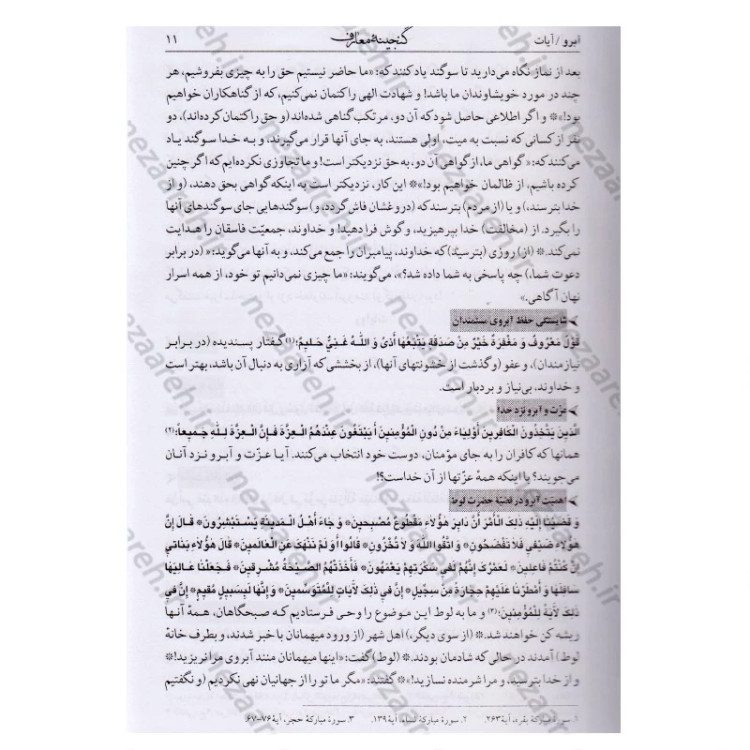 ابرو / آیات گنجینهٔ معارف ۱۱
بعد از نماز نگاه می‌دارید تا سوگند یاد کنند که: «ما حاضر نیستیم حق را به چیزی بفروشیم، هر
چند در مورد خویشاوندان ما باشد! و شهادت الهی را کتمان نمی‌کنیم، که از گناهکاران خواهیم
بود!»* و اگر اطلاعی حاصل شود که آن دو، مرتکب گناهی شده‌اند (و حق را کتمان کرده‌اند)، دو
نفر از کسانی که نسبت به میت، اولی هستند، به جای آنها قرار می‌گیرند، و به خدا سوگند یاد
می‌کنند که: «گواهی ما، از گواهی آن دو، به حق نزدیکتر است! و ما تجاوزی نکرده‌ایم که اگر چنین
کرده باشیم، از ظالمان خواهیم بود!»* این کار، نزدیکتر است به اینکه گواهی بحق دهند، (و از
خدا بترسند،) و یا (از مردم) بترسند که (دروغشان فاش گردد، و) سوگندهایی جای سوگندهای آنها
را بگیرد. از (مخالفت) خدا بپرهیزید، و گوش فرا دهید! و خداوند، جمعیّت فاسقان را هدایت
نمی‌کند.* (از) روزی (بترسید) که خداوند، پیامبران را جمع می‌کند، و به آنها می‌گوید: «(در برابر
دعوت شما،) چه پاسخی به شما داده شد؟»، می‌گویند: «ما چیزی نمی‌دانیم تو خود، از همه اسرار
نهان آگاهی.»
شایستگی حفظ آبروی مستمندان
قَوْلٌ مَعْرُوفٌ وَ مَغْفِرَةٌ خَيْرٌ مِنْ صَدَقَةٍ يَتْبَعُها أَذىً وَ اللَّهُ غَنِيٌّ حَلِيمٌ؛(۱) گفتار پسندیده (در برابر
نیازمندان)، و عفو (و گذشت از خشونتهای آنها)، از بخششی که آزاری به دنبال آن باشد، بهتر است
و خداوند، بی‌نیاز و بردبار است.
عزّت و آبرو نزد خدا
الَّذِينَ يَتَّخِذُونَ الْكافِرِينَ أَوْلِياءَ مِنْ دُونِ الْمُؤْمِنِينَ أَ يَبْتَغُونَ عِنْدَهُمُ الْعِزَّةَ فَإِنَّ الْعِزَّةَ لِلَّهِ جَمِيعاً؛(۲)
همانها که کافران را به جای مؤمنان، دوست خود انتخاب می‌کنند. آیا عزّت و آبرو نزد آنان
می‌جویند؟ با اینکه همهٔ عزّتها از آن خداست؟!
اهمیّت آبرو در قصّهٔ حضرت لوط
وَ قَضَيْنا إِلَيْهِ ذلِكَ الْأَمْرَ أَنَّ دابِرَ هؤُلاءِ مَقْطُوعٌ مُصْبِحِينَ* وَ جاءَ أَهْلُ الْمَدِينَةِ يَسْتَبْشِرُونَ* قالَ إِنَّ
هؤُلاءِ ضَيْفِي فَلا تَفْضَحُونِ* وَ اتَّقُوا اللَّهَ وَ لا تُخْزُونِ* قالُوا أَ وَ لَمْ نَنْهَكَ عَنِ الْعالَمِينَ* قالَ هؤُلاءِ بَناتِي
إِنْ كُنْتُمْ فاعِلِينَ* لَعَمْرُكَ إِنَّهُمْ لَفِي سَكْرَتِهِمْ يَعْمَهُونَ* فَأَخَذَتْهُمُ الصَّيْحَةُ مُشْرِقِينَ* فَجَعَلْنا عالِيَها
سافِلَها وَ أَمْطَرْنا عَلَيْهِمْ حِجارَةً مِنْ سِجِّيلٍ* إِنَّ فِي ذلِكَ لَآياتٍ لِلْمُتَوَسِّمِينَ* وَ إِنَّها لَبِسَبِيلٍ مُقِيمٍ* إِنَّ فِي
ذلِكَ لَآيَةً لِلْمُؤْمِنِينَ؛(۳) و ما به لوط این موضوع را وحی فرستادیم که صبحگاهان، همهٔ آنها
ریشه کن خواهند شد.* (از سوی دیگر،) اهل شهر (از ورود میهمانان با خبر شدند، و بطرف خانهٔ
لوط) آمدند در حالی که شادمان بودند.* (لوط) گفت: «اینها میهمانان منند آبروی مرا نریزید!*
و از خدا بترسید، و مرا شرمنده نسازید!»* گفتند: «مگر ما تو را از جهانیان نهی نکردیم (و نگفتیم
۱. سورهٔ مبارکهٔ بقره، آیهٔ ۲۶۳. ۲. سورهٔ مبارکهٔ نساء، آیهٔ ۱۳۹. ۳. سورهٔ مبارکهٔ حجر، آیهٔ ۷۶-۶۷
nezaareh.ir